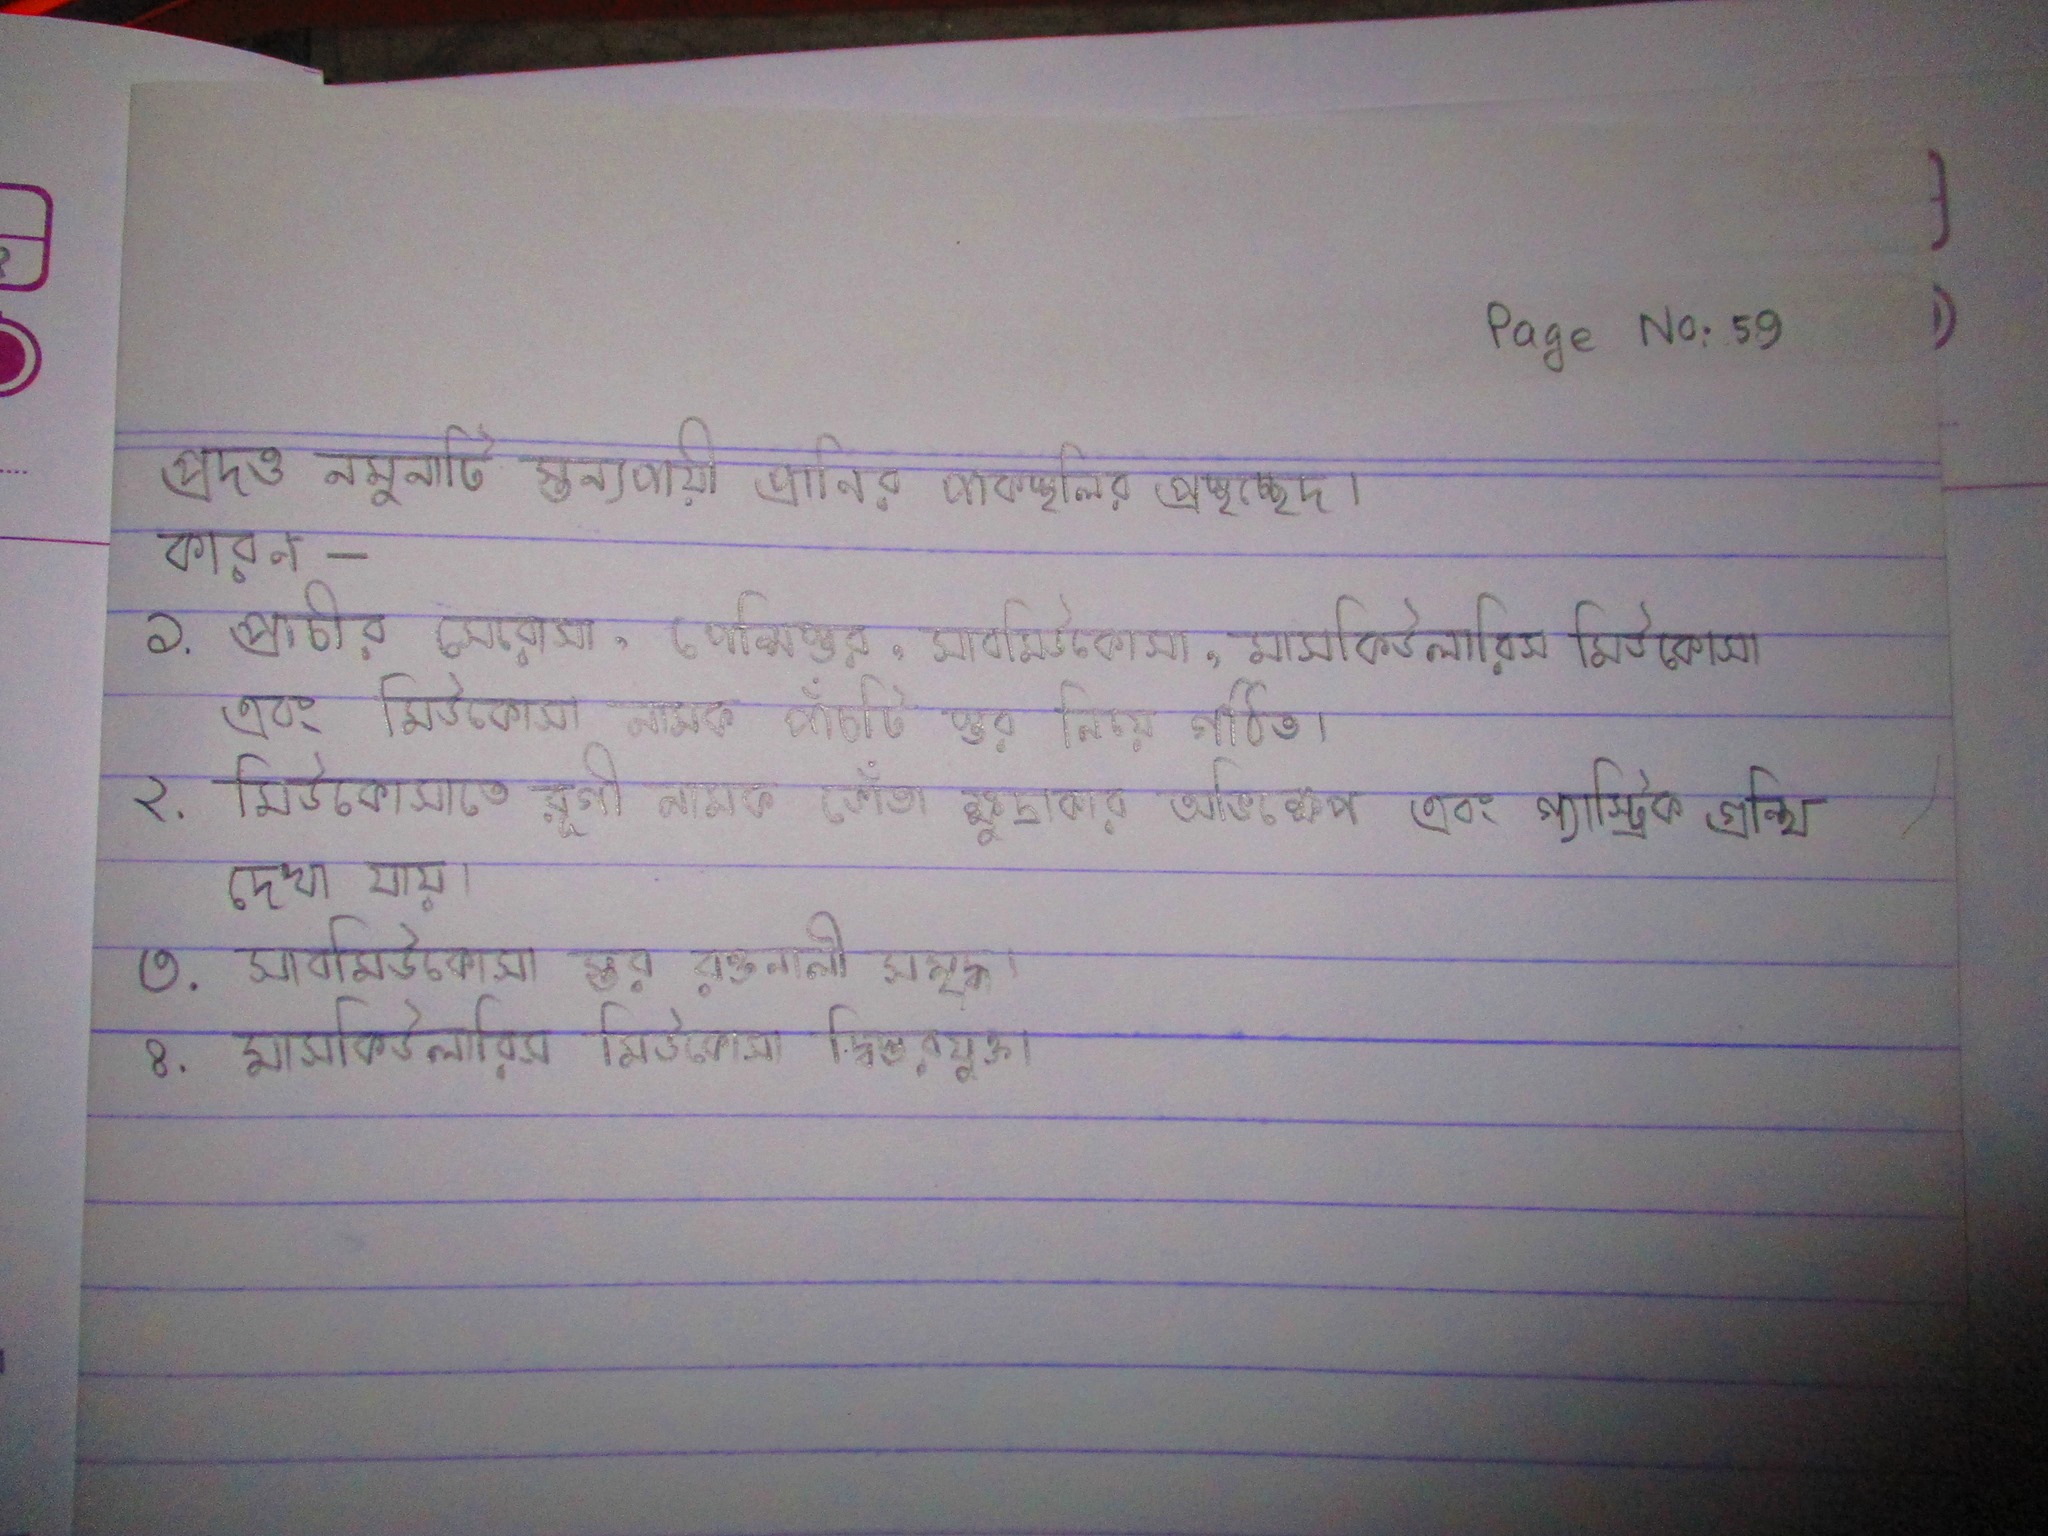 Page No: 59
প্রদত্ত নমুনাটি স্তন্যপায়ী প্রানির পাকস্থলির প্রস্থচ্ছেদ।
কারন —
১. প্রাচীর সেরোসা, পেশিস্তর, সাবমিউকোসা, মাসকিউলারিস মিউকোসা
এবং মিউকোসা নামক পাঁচটি স্তর নিয়ে গঠিত।
২. মিউকোসাতে রুগী নামক ভোঁতা ক্ষুদ্রাকার অভিক্ষেপ এবং গ্যাস্ট্রিক গ্রন্থি
দেখা যায়।
৩. সাবমিউকোসা স্তর রক্তনালী সমৃদ্ধ।
৪. মাসকিউলারিস মিউকোসা দ্বিস্তরযুক্ত।